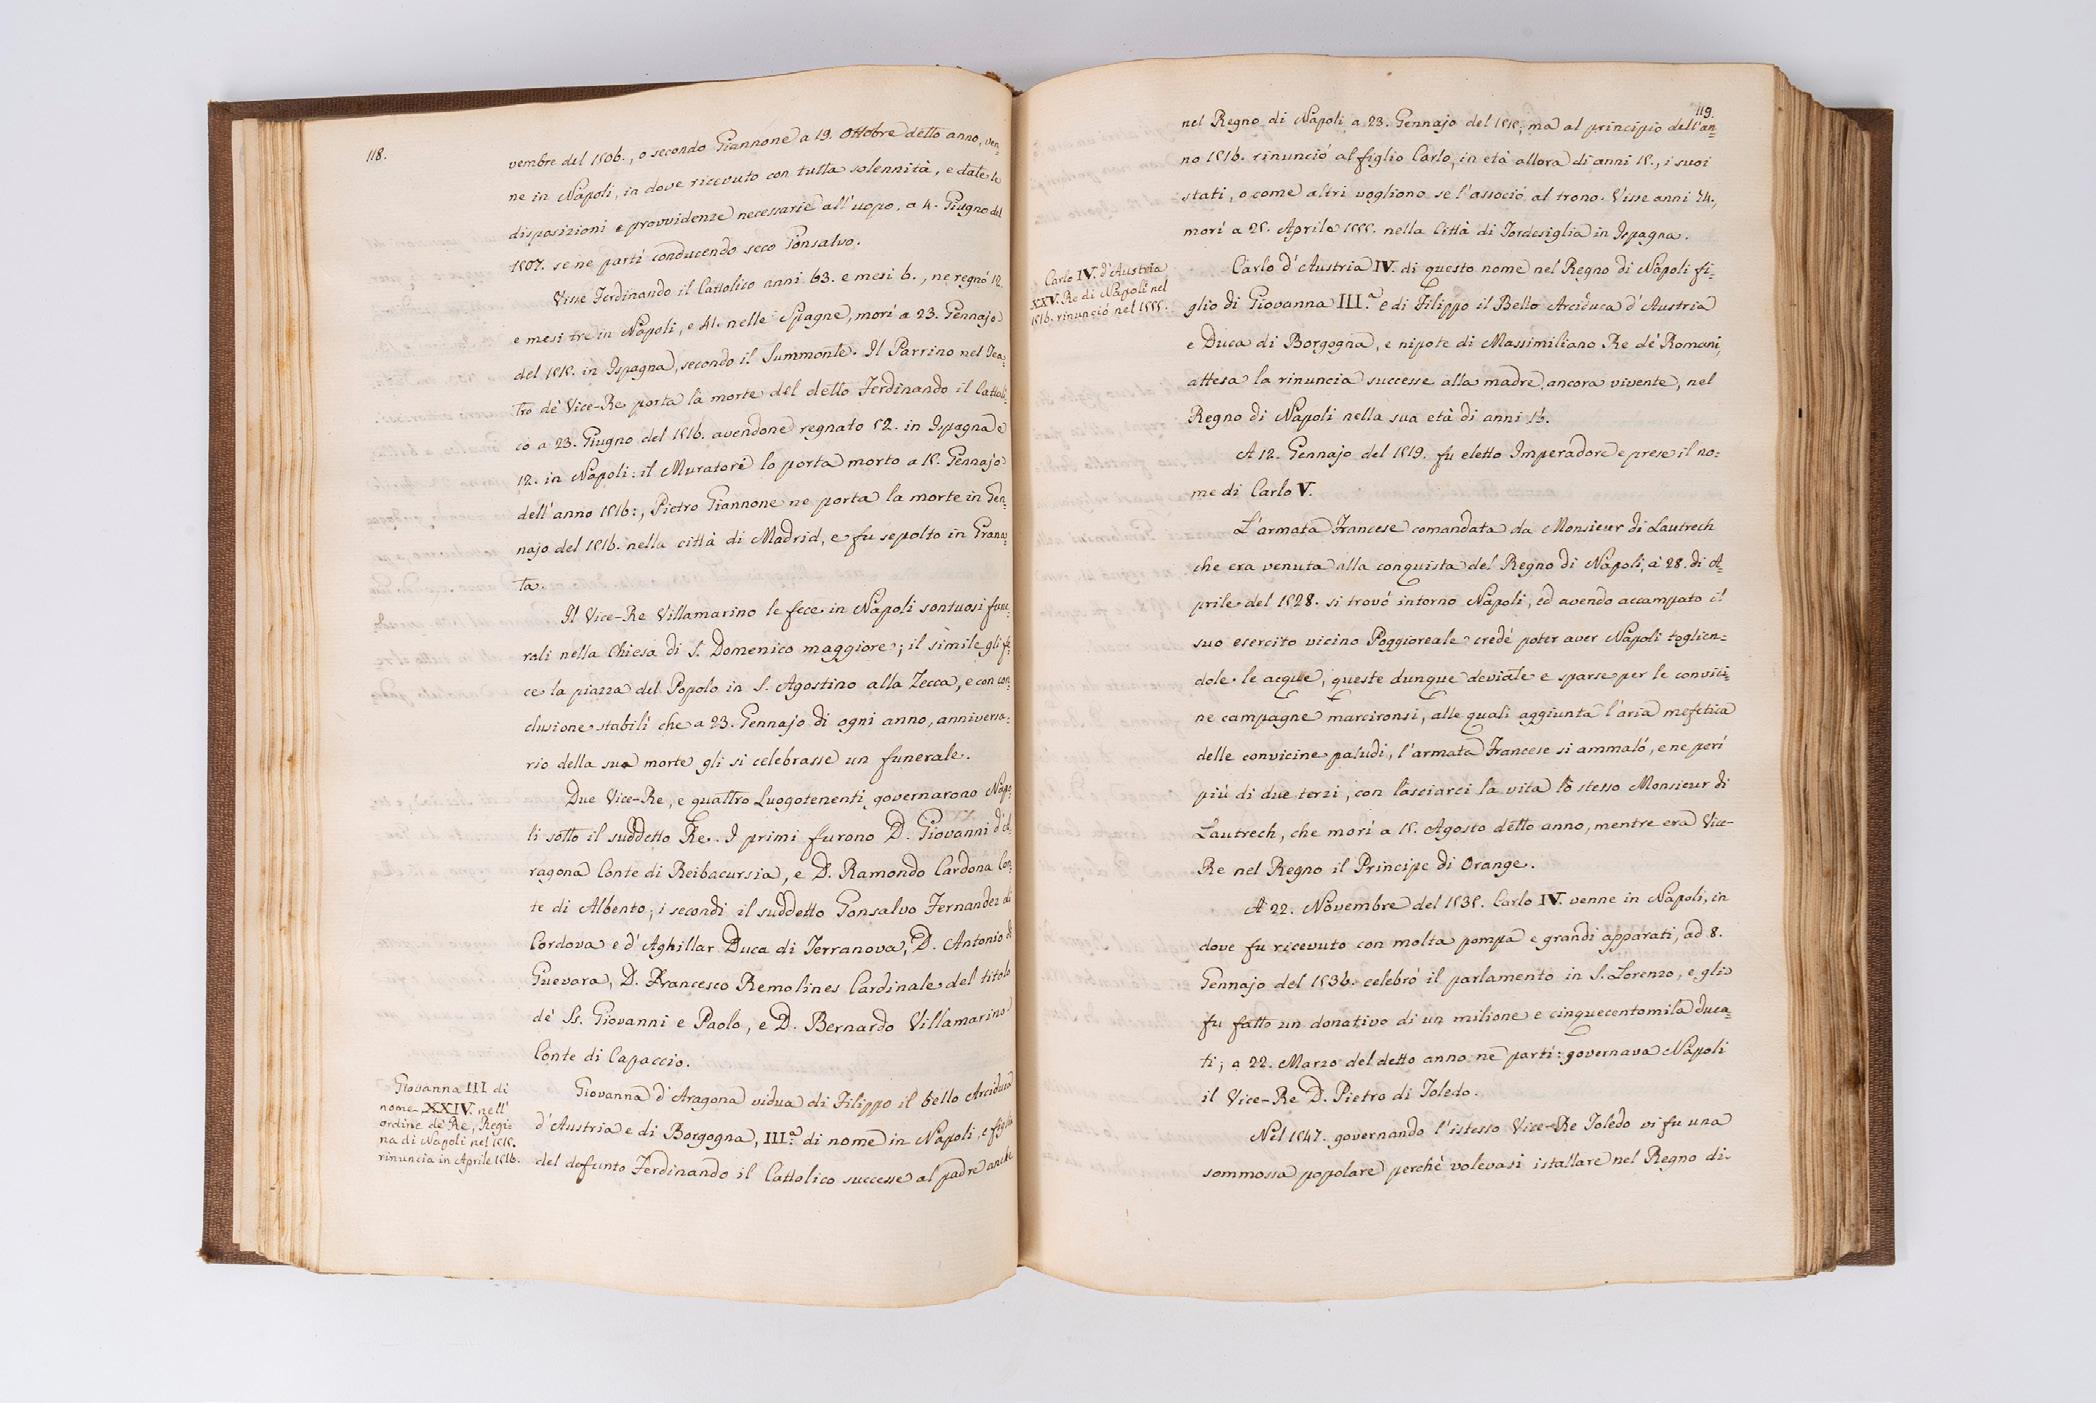 118.
vembre del 1506., o secondo Giannone a 19. Ottobre detto anno, ven=
ne in Napoli, in dove ricevuto con tutta solennità, e date le
disposizioni e provvidenze necessarie all'uopo, a 4. Giugno del
1507. se ne partì conducendo seco Gonsalvo.
Visse Ferdinando il Cattolico anni 63. e mesi 6., ne regnò 12.
e mesi tre in Napoli, e 41. nelle Spagne, morì a 23. Gennajo
del 1515. in Ispagna, secondo il Summonte. Il Parrino nel Tea=
tro dè Vice-Re porta la morte del detto Ferdinando il Cattoli=
co a 23. Giugno del 1516. avendone regnato 52. in Ispagna e
12. in Napoli: il Muratori lo porta morto a 15. Gennajo
dell'anno 1516:, Pietro Giannone ne porta la morte in Gen=
najo del 1516. nella città di Madrid, e fu sepolto in Grana=
ta.
Il Vice-Re Villamarino le fece in Napoli sontuosi fune=
rali nella Chiesa di S. Domenico maggiore; il simile gli fe=
ce la piazza del Popolo in S. Agostino alla Zecca, e con con=
clusione stabilì che a 23. Gennajo di ogni anno, anniversa=
rio della sua morte gli si celebrasse un funerale.
Due Vice-Re, e quattro Luogotenenti governarono Napo=
li sotto il suddetto Re. I primi furono D. Giovanni d'A=
ragona Conte di Reibacursia, e D. Ramondo Cardona Con=
te di Albento; i secondi il suddetto Gonsalvo Fernandez di
Cordova e d'Aghillar Duca di Terranova, D. Antonio di
Guevara, D. Francesco Remolines Cardinale del titolo
dè Ss. Giovanni e Paolo, e D. Bernardo Villamarino
Conte di Capaccio.
Giovanna III. di
nome XXIV. nell'
ordine dè Re, Regi=
na di Napoli nel 1515.
rinuncia in Aprile 1516.
Giovanna d'Aragona vidua di Filippo il bello Arciduca
d'Austria e di Borgogna, III.a di nome in Napoli, e figlia
del defunto Ferdinando il Cattolico successe al padre anche
119.
nel Regno di Napoli a 23. Gennajo del 1515, ma al principio dell'an=
no 1516. rinunciò al figlio Carlo, in età allora di anni 15., i suoi
stati, o come altri vogliono se l'associò al trono. Visse anni 74.,
morì a 25. Aprile 1555. nella Città di Tordesiglia in Ispagna.
Carlo IV. d'Austria
XXV. Re di Napoli nel
1516. rinunciò nel 1555.
Carlo d'Austria IV. di questo nome nel Regno di Napoli fi=
glio di Giovanna III.a e di Filippo il Bello Arciduca d'Austria
e Duca di Borgogna, e nipote di Massimiliano Re dè Romani,
attesa la rinuncia successe alla madre ancora vivente, nel
Regno di Napoli nella sua età di anni 16.
A 12. Gennajo del 1519. fu eletto Imperadore e prese il no=
me di Carlo V.
L'armata Francese comandata da Monsieur di Lautrech
che era venuta alla conquista del Regno di Napoli, a 28. di A=
prile del 1528. si trovò intorno Napoli, ed avendo accampato il
suo esercito vicino Poggioreale credè poter aver Napoli toglien=
dole le acque, queste dunque deviate e sparse per le convici=
ne campagne marcironsi, alle quali aggiunta l'aria mefetica
delle convicine paludi, l'armata Francese si ammalò, e ne perì
più di due terzi, con lasciarci la vita lo stesso Monsieur di
Lautrech, che morì a 15. Agosto detto anno, mentre era Vice-
Re nel Regno il Principe di Orange.
A 22. Novembre del 1535. Carlo IV. venne in Napoli, in
dove fu ricevuto con molta pompa e grandi apparati, ad 8.
Gennajo del 1536. celebrò il parlamento in S. Lorenzo, e gli
fu fatto un donativo di un milione e cinquecentomila duca=
ti; a 22. Marzo del detto anno ne partì: governava Napoli
il Vice-Re D. Pietro di Toledo.
Nel 1547. governando l'istesso Vice-Re Toledo vi fu una
sommossa popolare perchè volevasi istallare nel Regno di=